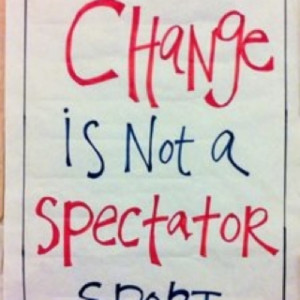 CHANge
iS Not a
SpectatoR
SPORT